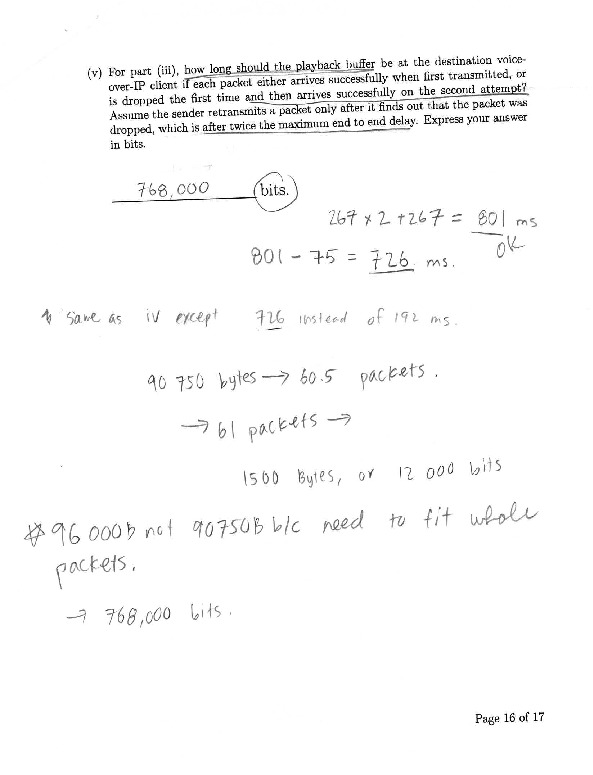 (v) For part (iii), how long should the playback buffer be at the destination voice-
over-IP client if each packet either arrives successfully when first transmitted, or
is dropped the first time and then arrives successfully on the second attempt?
Assume the sender retransmits a packet only after it finds out that the packet was
dropped, which is after twice the maximum end to end delay. Express your answer
in bits.
768,000 bits.
267 x 2 + 267 = 801 ms
OK
801 - 75 = 726 ms.
Same as iv except 726 instead of 192 ms.
90 750 bytes → 60.5 packets.
→ 61 packets →
1500 Bytes, or 12 000 bits
* 96 000b not 90750B b/c need to fit whole
packets.
→ 768,000 bits.
Page 16 of 17